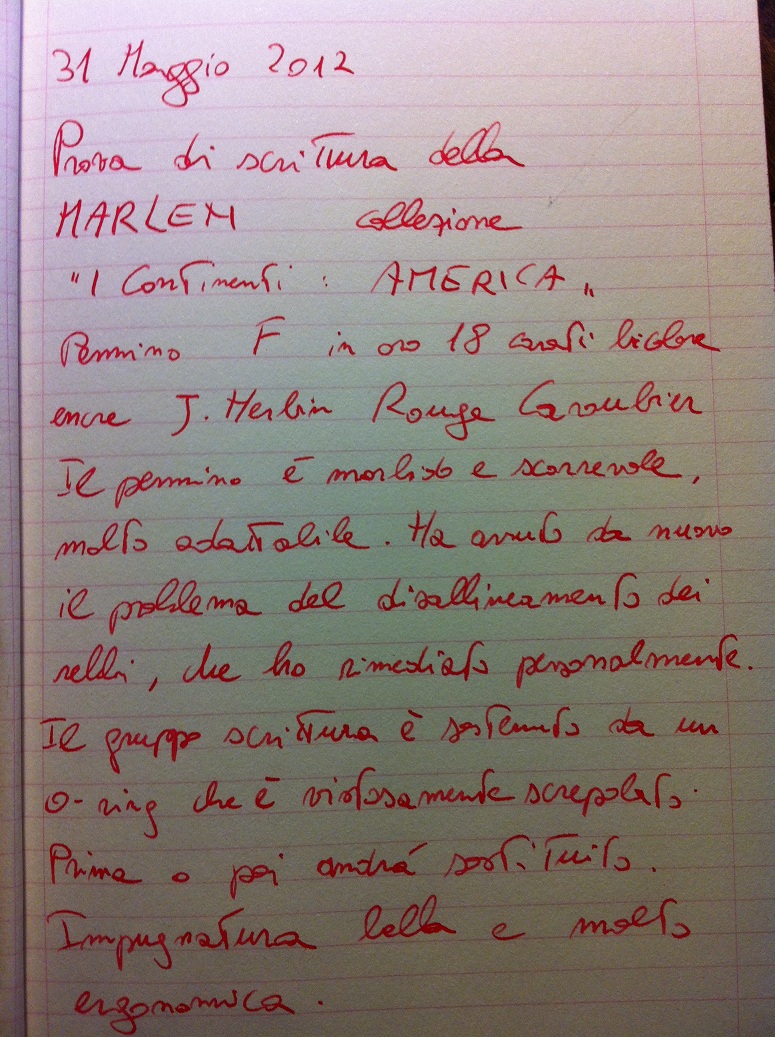 31 Maggio 2012
Prova di scrittura della
MARLEN collezione
"I Continenti : AMERICA"
Pennino F in oro 18 carati bicolore
encre J. Herbin Rouge Caroubier
Il pennino è morbido e scorrevole,
molto adattabile. Ha avuto da nuovo
il problema del disallineamento dei
rebbi, che ho rimediato personalmente.
Il gruppo scrittura è sostenuto da un
o-ring che è vistosamente screpolato.
Prima o poi andrá sostituito.
Impugnatura bella e molto
ergonomica.